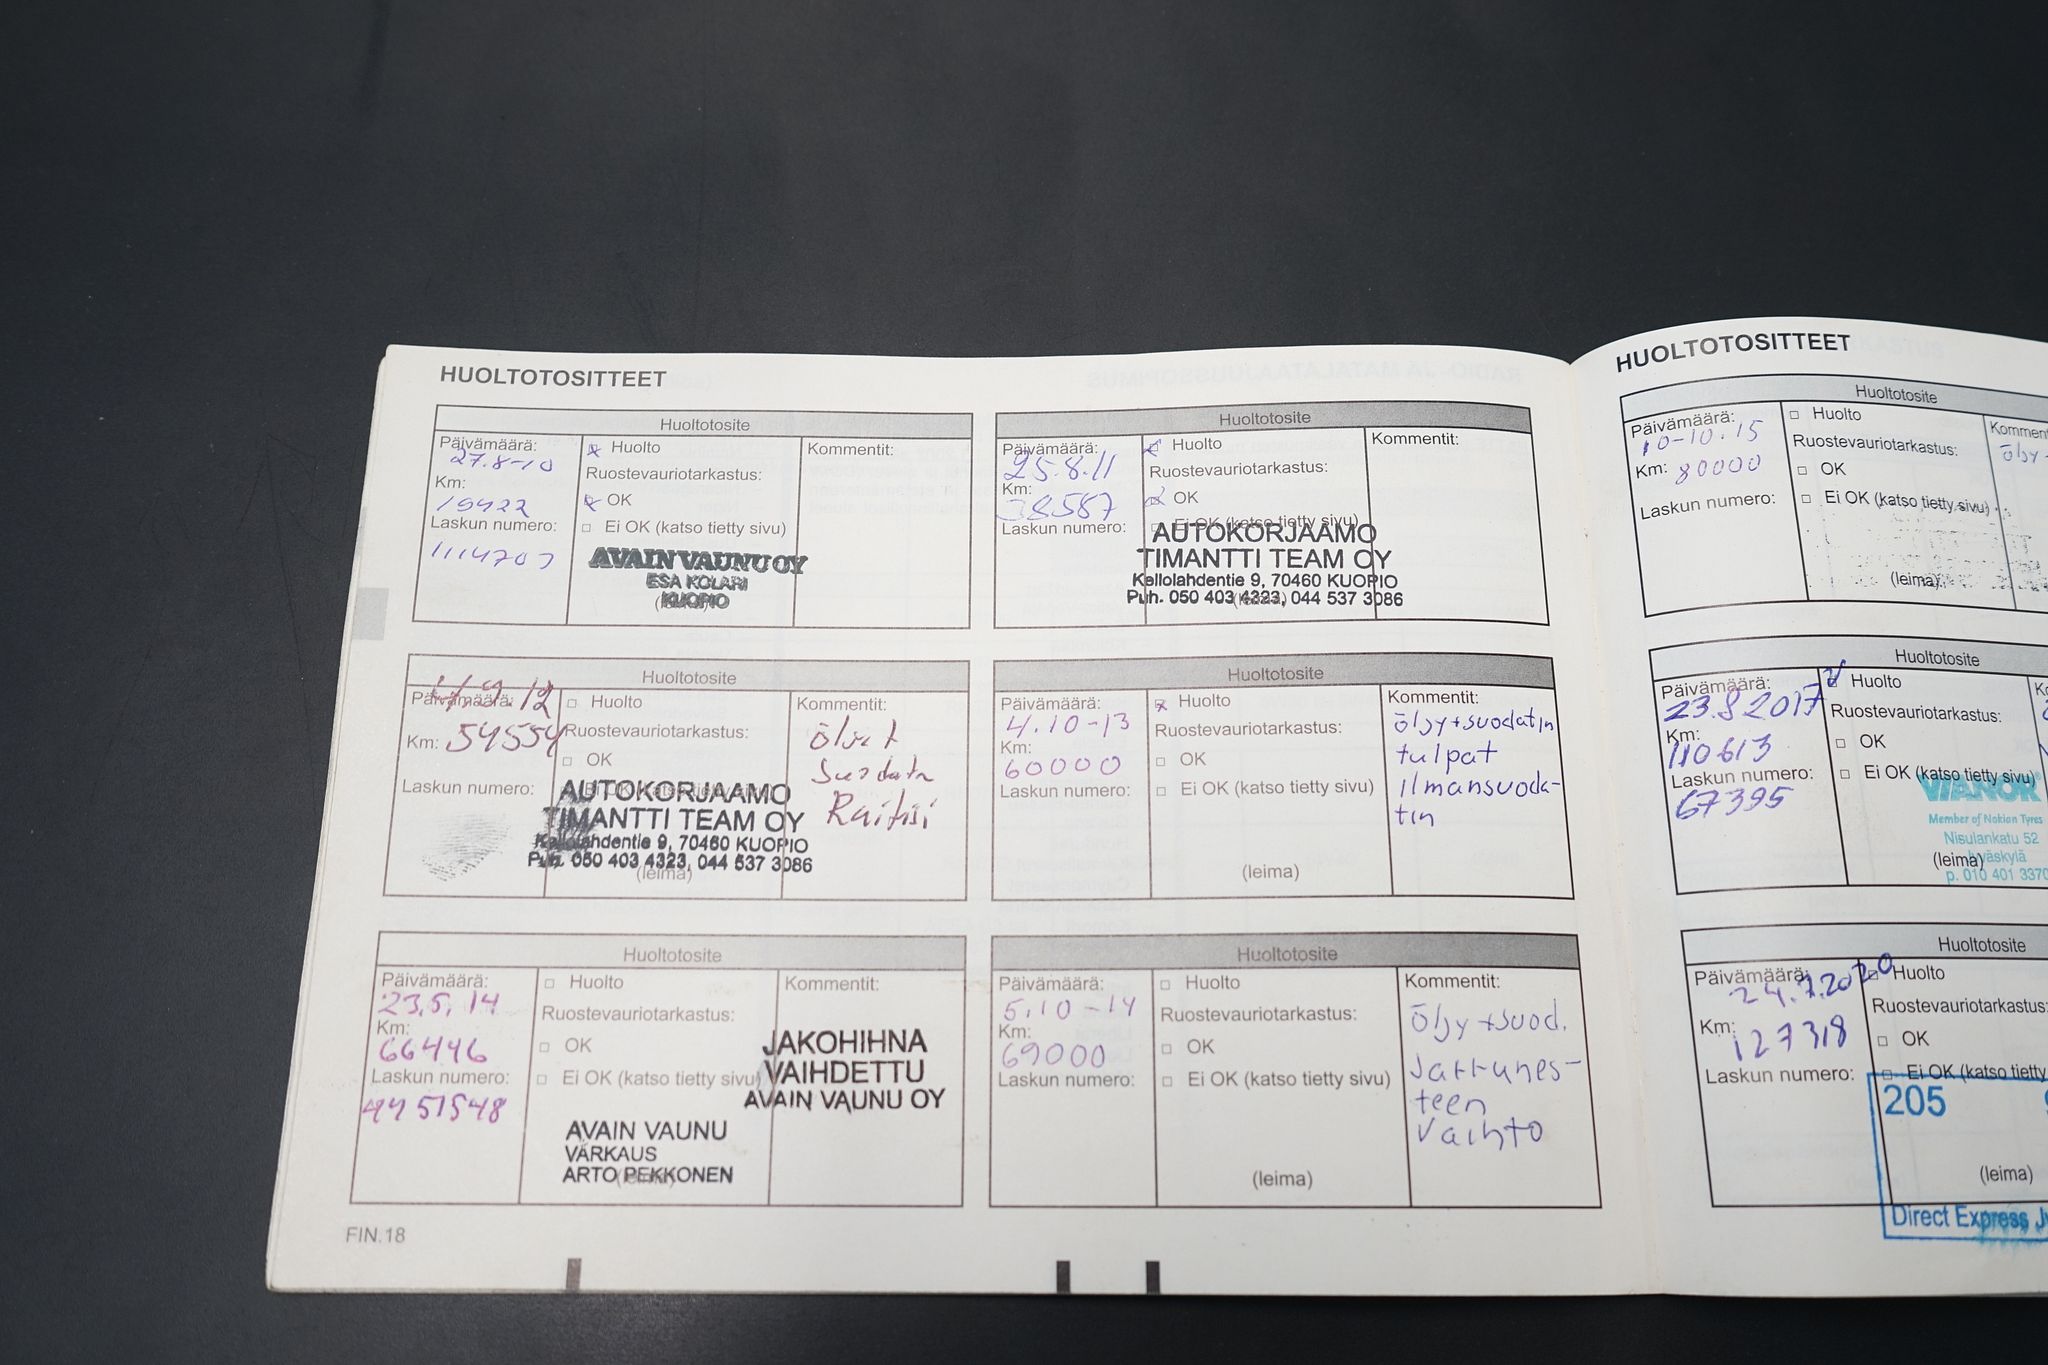 HUOLTOTOSITTEET
Huoltotosite
Päivämäärä:
27.8-10
Km:
19422
Laskun numero:
Huolto
Ruostevauriotarkastus:
OK
Ei OK (katso tietty sivu)
AVAIN VAUNU OY
ESA KOLARI
KUOPIO
(leima)
Kommentit:
Huoltotosite
Päivämäärä:
25.8.11
Km:
38587
Laskun numero:
Huolto
Ruostevauriotarkastus:
OK
Ei OK (katso tietty sivu)
AUTOKORJAAMO
TIMANTTI TEAM OY
Kellolahdentie 9, 70460 KUOPIO
Puh. 050 403 4323, 044 537 3086
(leima)
Kommentit:
Huoltotosite
Päivämäärä:
Km: 54554
Laskun numero:
Huolto
Ruostevauriotarkastus:
OK
Ei OK (katso tietty sivu)
AUTOKORJAAMO
TIMANTTI TEAM OY
Kellolahdentie 9, 70460 KUOPIO
Puh. 050 403 4323, 044 537 3086
(leima)
Kommentit:
Huoltotosite
Päivämäärä:
4.10-13
Km:
60000
Laskun numero:
Huolto
Ruostevauriotarkastus:
OK
Ei OK (katso tietty sivu)
(leima)
Kommentit:
öljy+suodatin
tulpat
ilmansuoda-
tin
Huoltotosite
Päivämäärä:
23.5.14
Km:
66446
Laskun numero:
4451548
Huolto
Ruostevauriotarkastus:
OK
Ei OK (katso tietty sivu)
AVAIN VAUNU
VARKAUS
ARTO PEKKONEN
(leima)
Kommentit:
JAKOHIHNA
VAIHDETTU
AVAIN VAUNU OY
Huoltotosite
Päivämäärä:
5.10-14
Km:
69000
Laskun numero:
Huolto
Ruostevauriotarkastus:
OK
Ei OK (katso tietty sivu)
(leima)
Kommentit:
öljy+suod.
Jarrunes-
teen
Vaihto
FIN.18
HUOLTOTOSITTEET
Huoltotosite
Päivämäärä:
10-10.15
Km: 80000
Laskun numero:
Huolto
Ruostevauriotarkastus:
OK
Ei OK (katso tietty sivu)
(leima)
Komment
öljy
Huoltotosite
Päivämäärä:
23.8 2017
Km:
110613
Laskun numero:
67395
Huolto
Ruostevauriotarkastus:
OK
Ei OK (katso tietty sivu)
VIANOR
Member of Nokian Tyres
Nisulankatu 52
Jyväskylä
(leima)
p. 010 401 3370
Huoltotosite
Päivämäärä:
24.7.2020
Km:
127318
Laskun numero:
Huolto
Ruostevauriotarkastus:
OK
Ei OK (katso tietty
205
(leima)
Direct Express